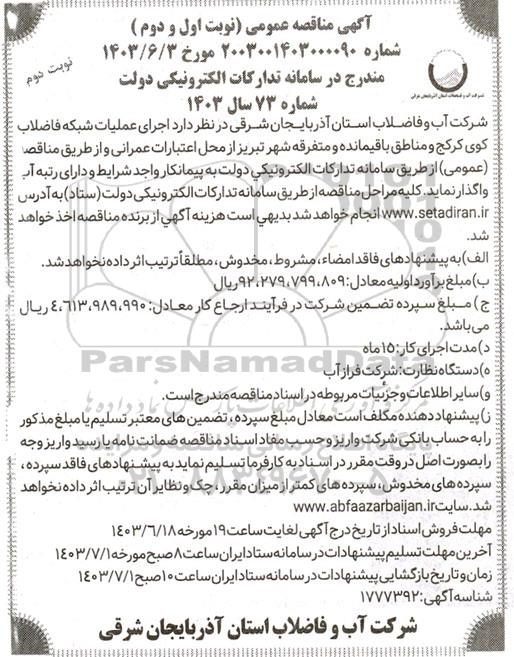 آگهی مناقصه عمومی (نوبت اول و دوم )
شماره ۲۰۰۳۰۰۱۴۰۳۰۰۰۰۹۰ مورخ ۱۴۰۳/۶/۳
نوبت دوم
مندرج در سامانه تدارکات الکترونیکی دولت
شماره ۷۳ سال ۱۴۰۳
شرکت آب و فاضلاب استان آذربایجان شرقی
شرکت آب و فاضلاب استان آذربایجان شرقی در نظر دارد اجرای عملیات شبکه فاضلاب
کوی کرکج و مناطق باقیمانده و متفرقه شهر تبریز از محل اعتبارات عمرانی و از طریق مناقصه
(عمومی) از طریق سامانه تدارکات الکترونیکی دولت به پیمانکار واجد شرایط و دارای رتبه آب
واگذار نماید. کلیه مراحل مناقصه از طریق سامانه تدارکات الکترونیکی دولت (ستاد) به آدرس
www.setadiran.ir انجام خواهد شد بدیهی است هزینه آگهی از برنده مناقصه اخذ خواهد
شد.
الف) به پیشنهادهای فاقد امضاء، مشروط، مخدوش، مطلقاً ترتیب اثر داده نخواهد شد.
ب) مبلغ برآورد اولیه معادل: ۹۲،۲۷۹،۷۹۹،۸۰۹ ریال
ج) مبلغ سپرده تضمین شرکت در فرآیند ارجاع کار معادل: ۴،۶۱۳،۹۸۹،۹۹۰ ریال
می باشد.
د) مدت اجرای کار: ۱۵ ماه
ه) دستگاه نظارت: شرکت فراز آب
و) سایر اطلاعات و جزئیات مربوطه در اسناد مناقصه مندرج است.
ز) پیشنهاد دهنده مکلف است معادل مبلغ سپرده، تضمین های معتبر تسلیم یا مبلغ مذکور
را به حساب بانکی شرکت واریز و حسب مفاد اسناد مناقصه ضمانت نامه یا رسید واریز وجه
را بصورت اصل در وقت مقرر در اسناد به کارفرما تسلیم نماید به پیشنهادهای فاقد سپرده،
سپرده های مخدوش، سپرده های کمتر از میزان مقرر، چک و نظایر آن ترتیب اثر داده نخواهد
شد. سایت www.abfaazarbaijan.ir
مهلت فروش اسناد از تاریخ درج آگهی لغایت ساعت ۱۹ مورخه ۱۴۰۳/۶/۱۸
آخرین مهلت تسلیم پیشنهادات در سامانه ستاد ایران ساعت ۸ صبح مورخه ۱۴۰۳/۷/۱
زمان و تاریخ بازگشایی پیشنهادات در سامانه ستاد ایران ساعت ۱۰ صبح ۱۴۰۳/۷/۱
شناسه آگهی: ۱۷۷۷۳۹۲
شرکت آب و فاضلاب استان آذربایجان شرقی
ParsNamadData